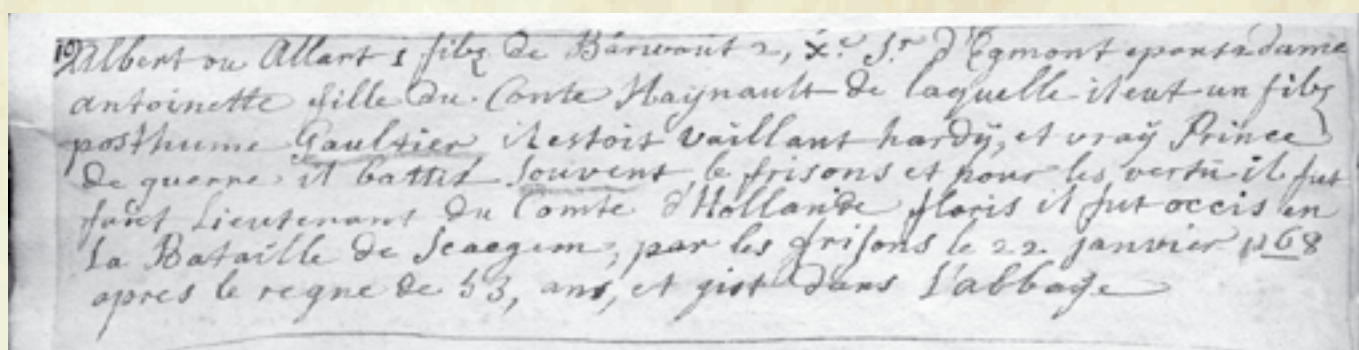 19 Albert ou Allart 1 filz de Barwout 2, x.e S.r d'Egmont epousa dame
antoinette fille du Conte Haynault de laquelle il eut un filz
posthume Gaultier il estoit vaillant hardÿ, et vraÿ Prince
de guerre, il battit souvent le frisons et pour les vertu il fut
fait Lieutenant du Comte d'Hollande floris il fut occis en
La Bataille de Scaegem, par les frisons le 22. janvier 1168
apres le regne de 53, ans, et gist dans L'abbaÿe